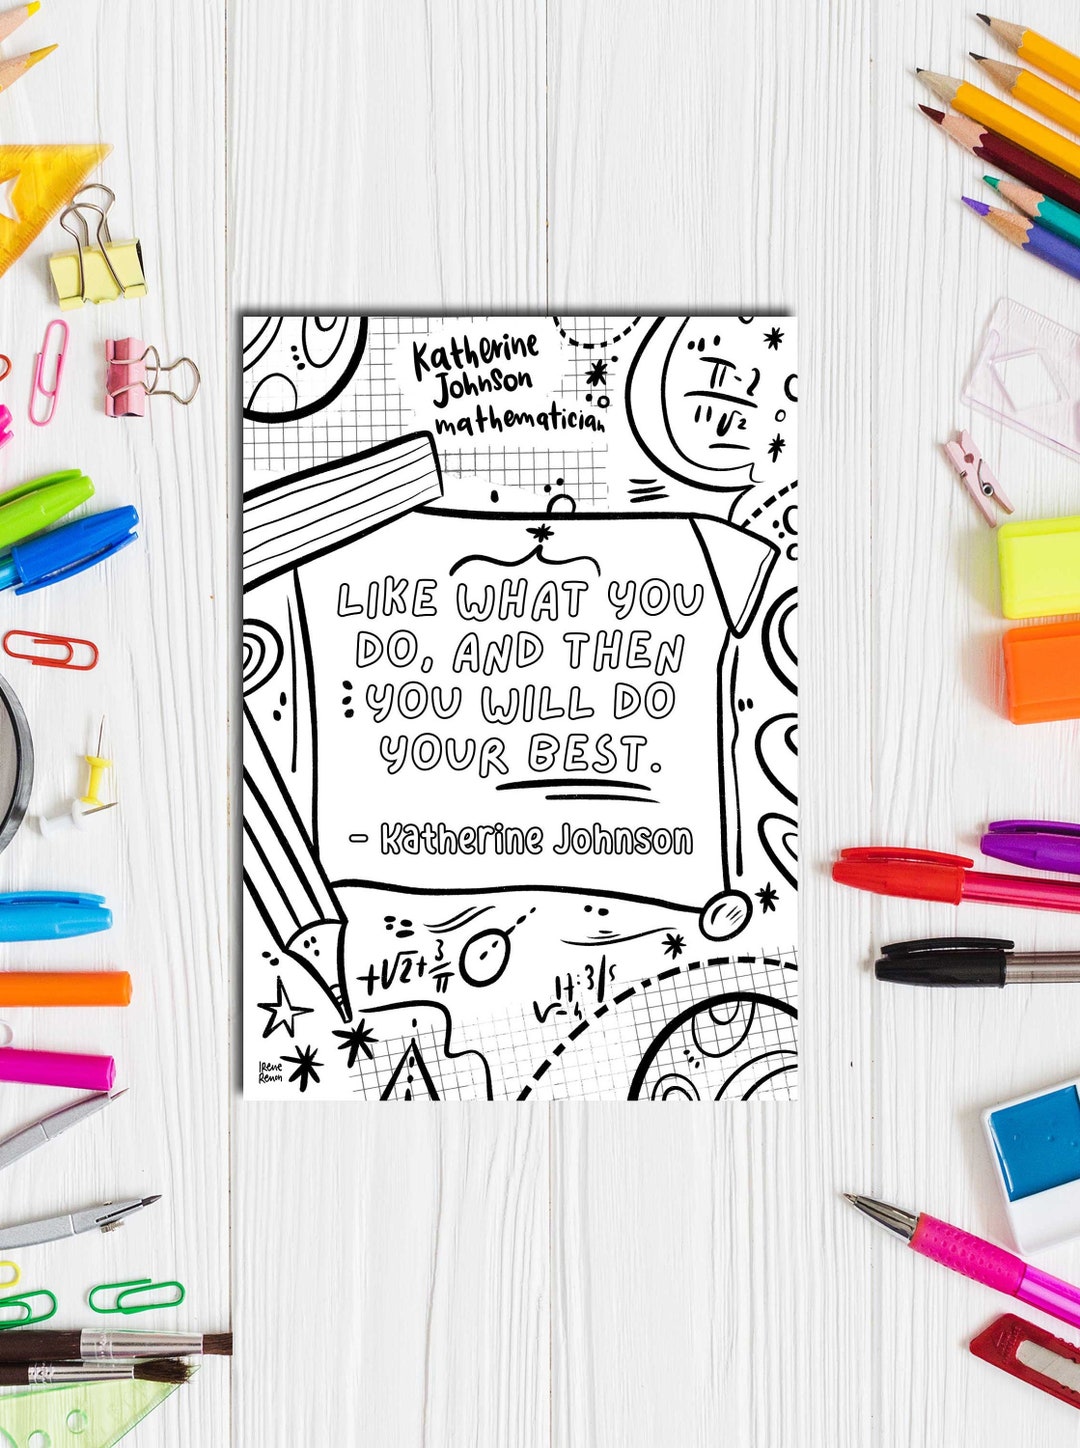 Katherine
Johnson
mathematician
π-2
"√2
LIKE WHAT YOU
DO, AND THEN
YOU WILL DO
YOUR BEST.
- Katherine Johnson
+√2+3/π
Irene
Renon